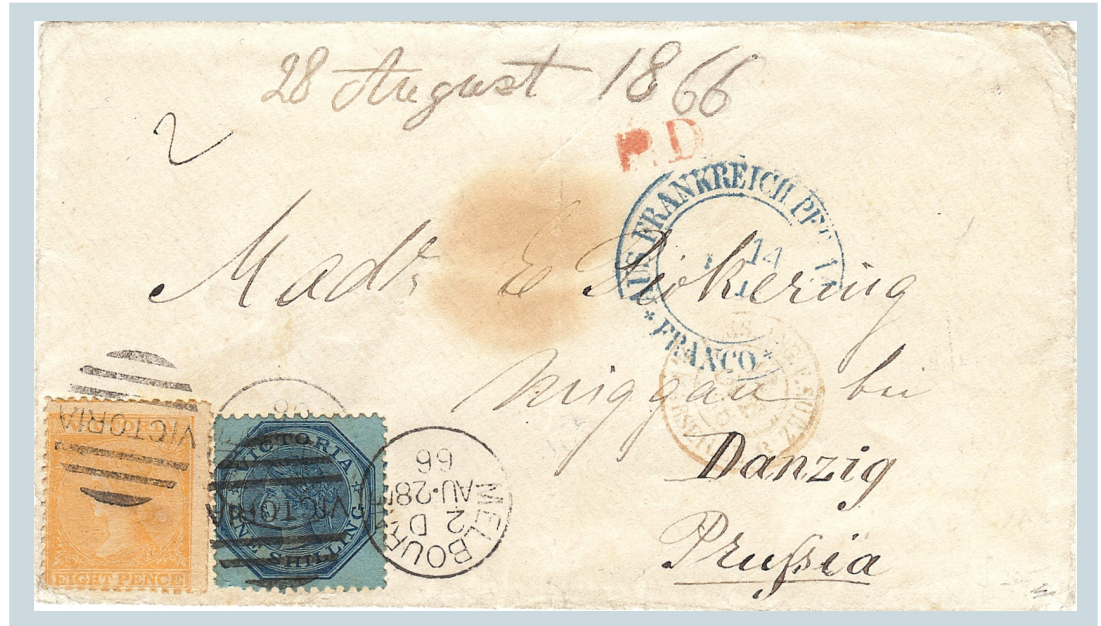 28 August 1866
2
P.D
AUS FRANKREICH
14
* FRANCO *
Mad. E Pickering
Miggau bei
Danzig
Prußia
SUEZ
VICTORIA
EIGHT PENCE
VICTORIA
ONE SHILLING
VICTORIA
MELBOURNE
2 D
AU·28
66